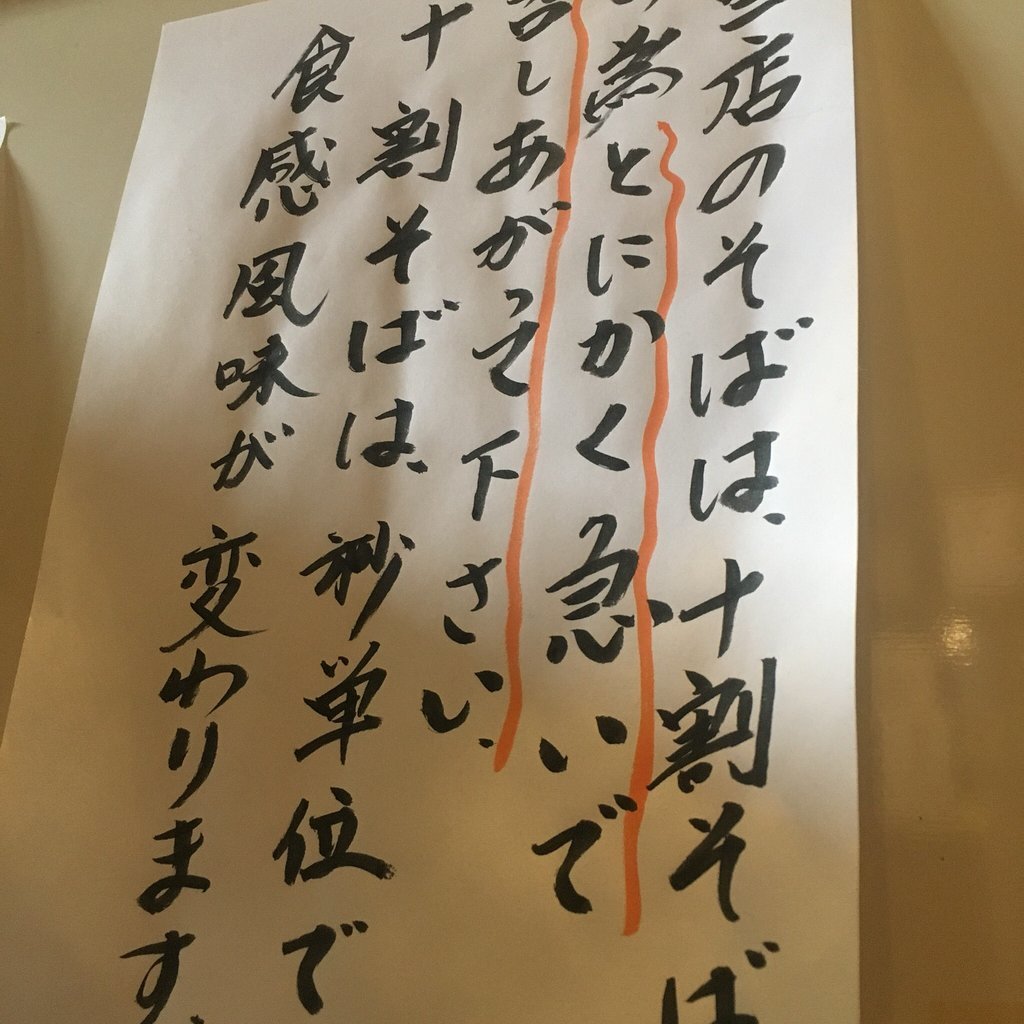 当店のそばは、十割そば
の為とにかく急いで
召しあがって下さい、
十割そばは、秒単位で
食感風味が変わります、